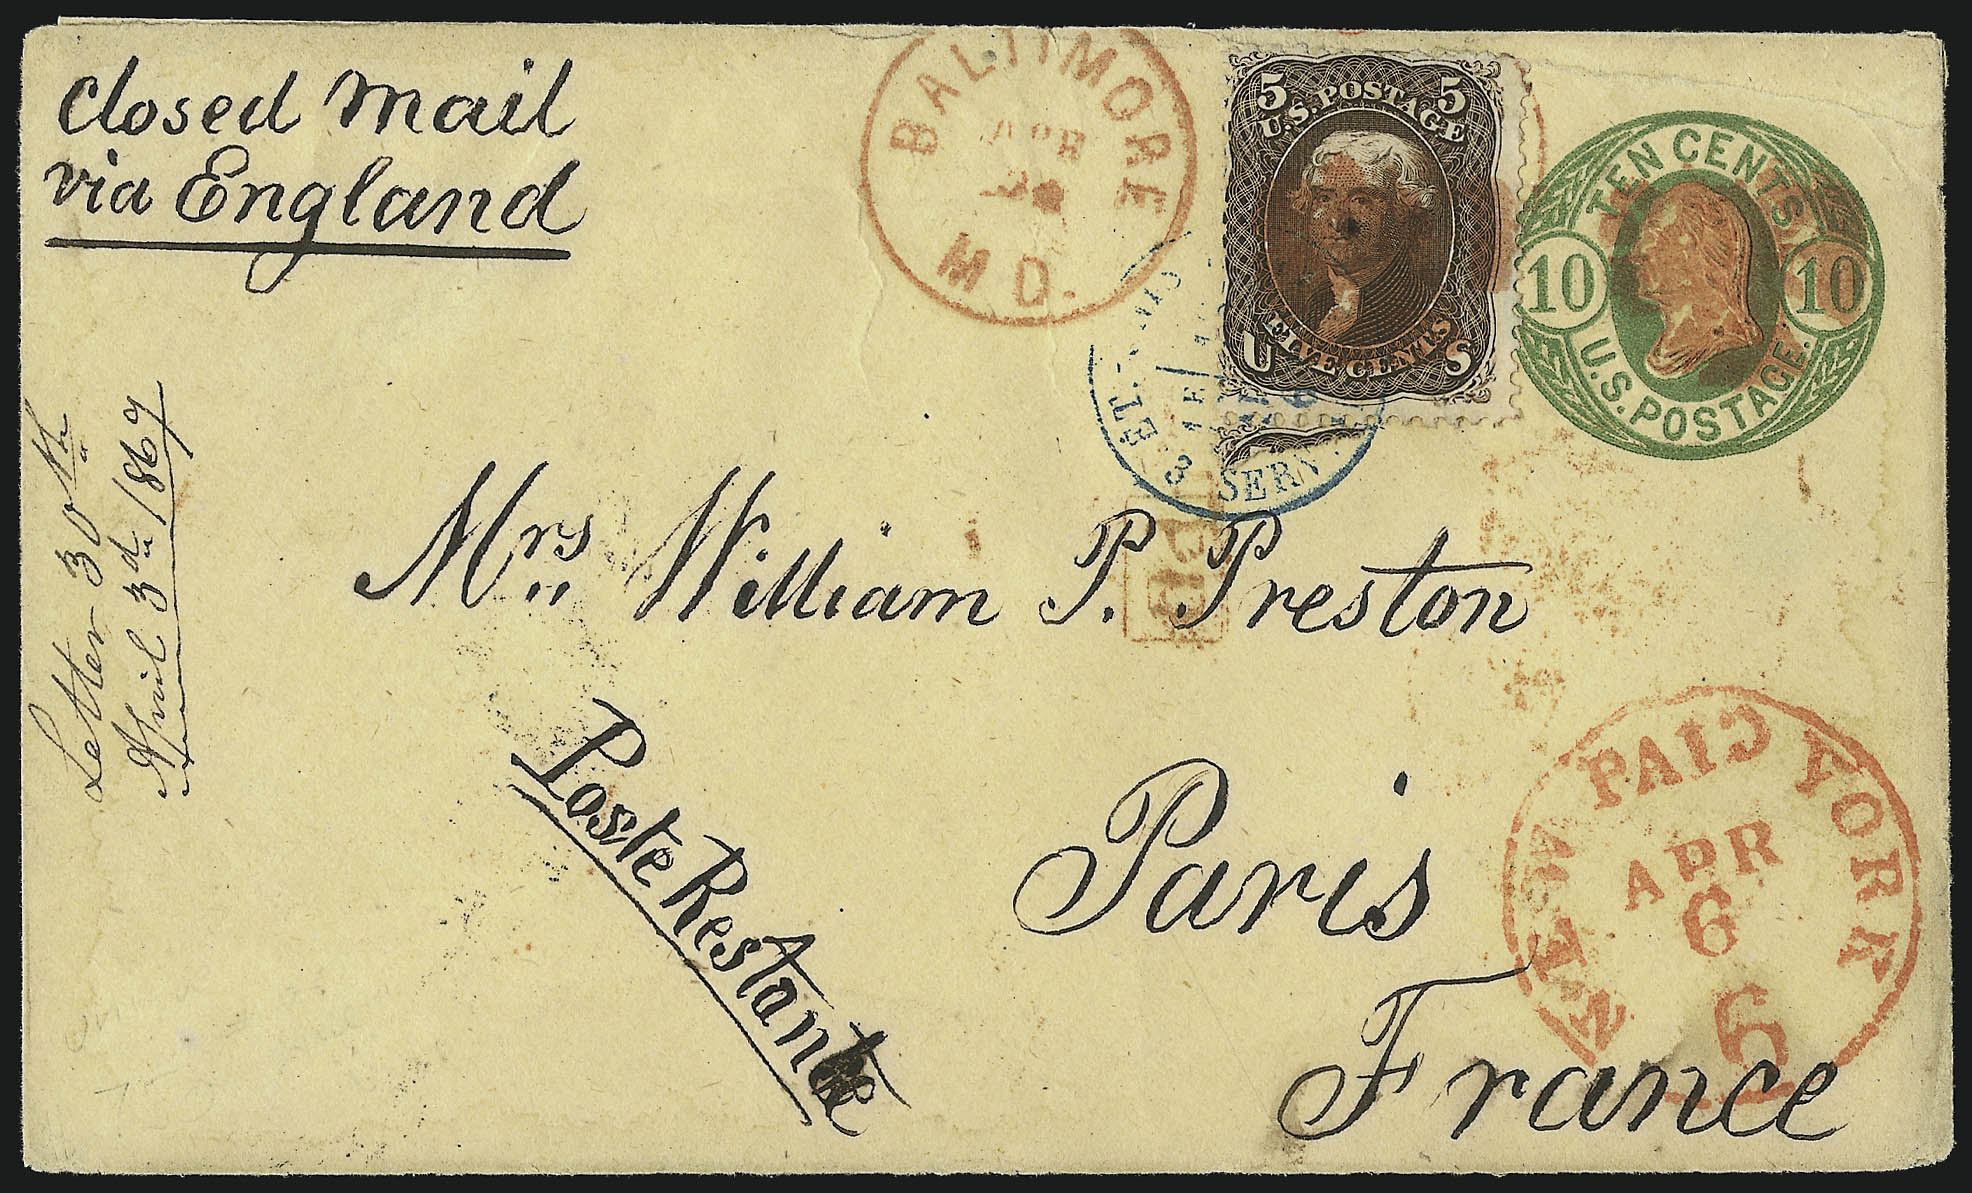 Closed Mail
via England
BALTIMORE
APR
MD.
5 U.S. POSTAGE 5
U FIVE CENTS S
TEN CENTS
10 10
U.S. POSTAGE.
3 SERV.
PD
Letter 30th
April 3d. 1869
Mrs. William P. Preston
Poste Restante
Paris
France
NEW PAID YORK
APR
6
6